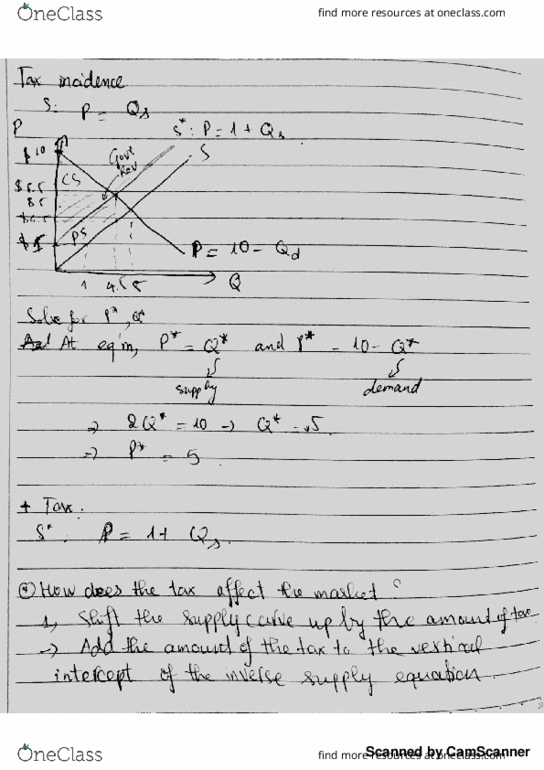 OneClass
find more resources at oneclass.com
Tax incidence
S: P = Qs
P
S*: P = 1 + Qs
S
$10
Govt
Rev
CS
$5.5
$5
$4.5
PS
$1
P = 10 - Qd
1 4.5 5
Q
Solve for P*, Q*
At eq'm, P* = Q* and P* = 10 - Q*
supply
demand
⇒ 2Q* = 10 → Q* = 5
⇒ P* = 5
+ Tax.
S*: P = 1 + Qs.
How does the tax affect the market?
1, Shift the supply curve up by the amount of tax
→ Add the amount of the tax to the vertical
intercept of the inverse supply equation.
OneClass
find more resources at oneclass.com
Scanned by CamScanner